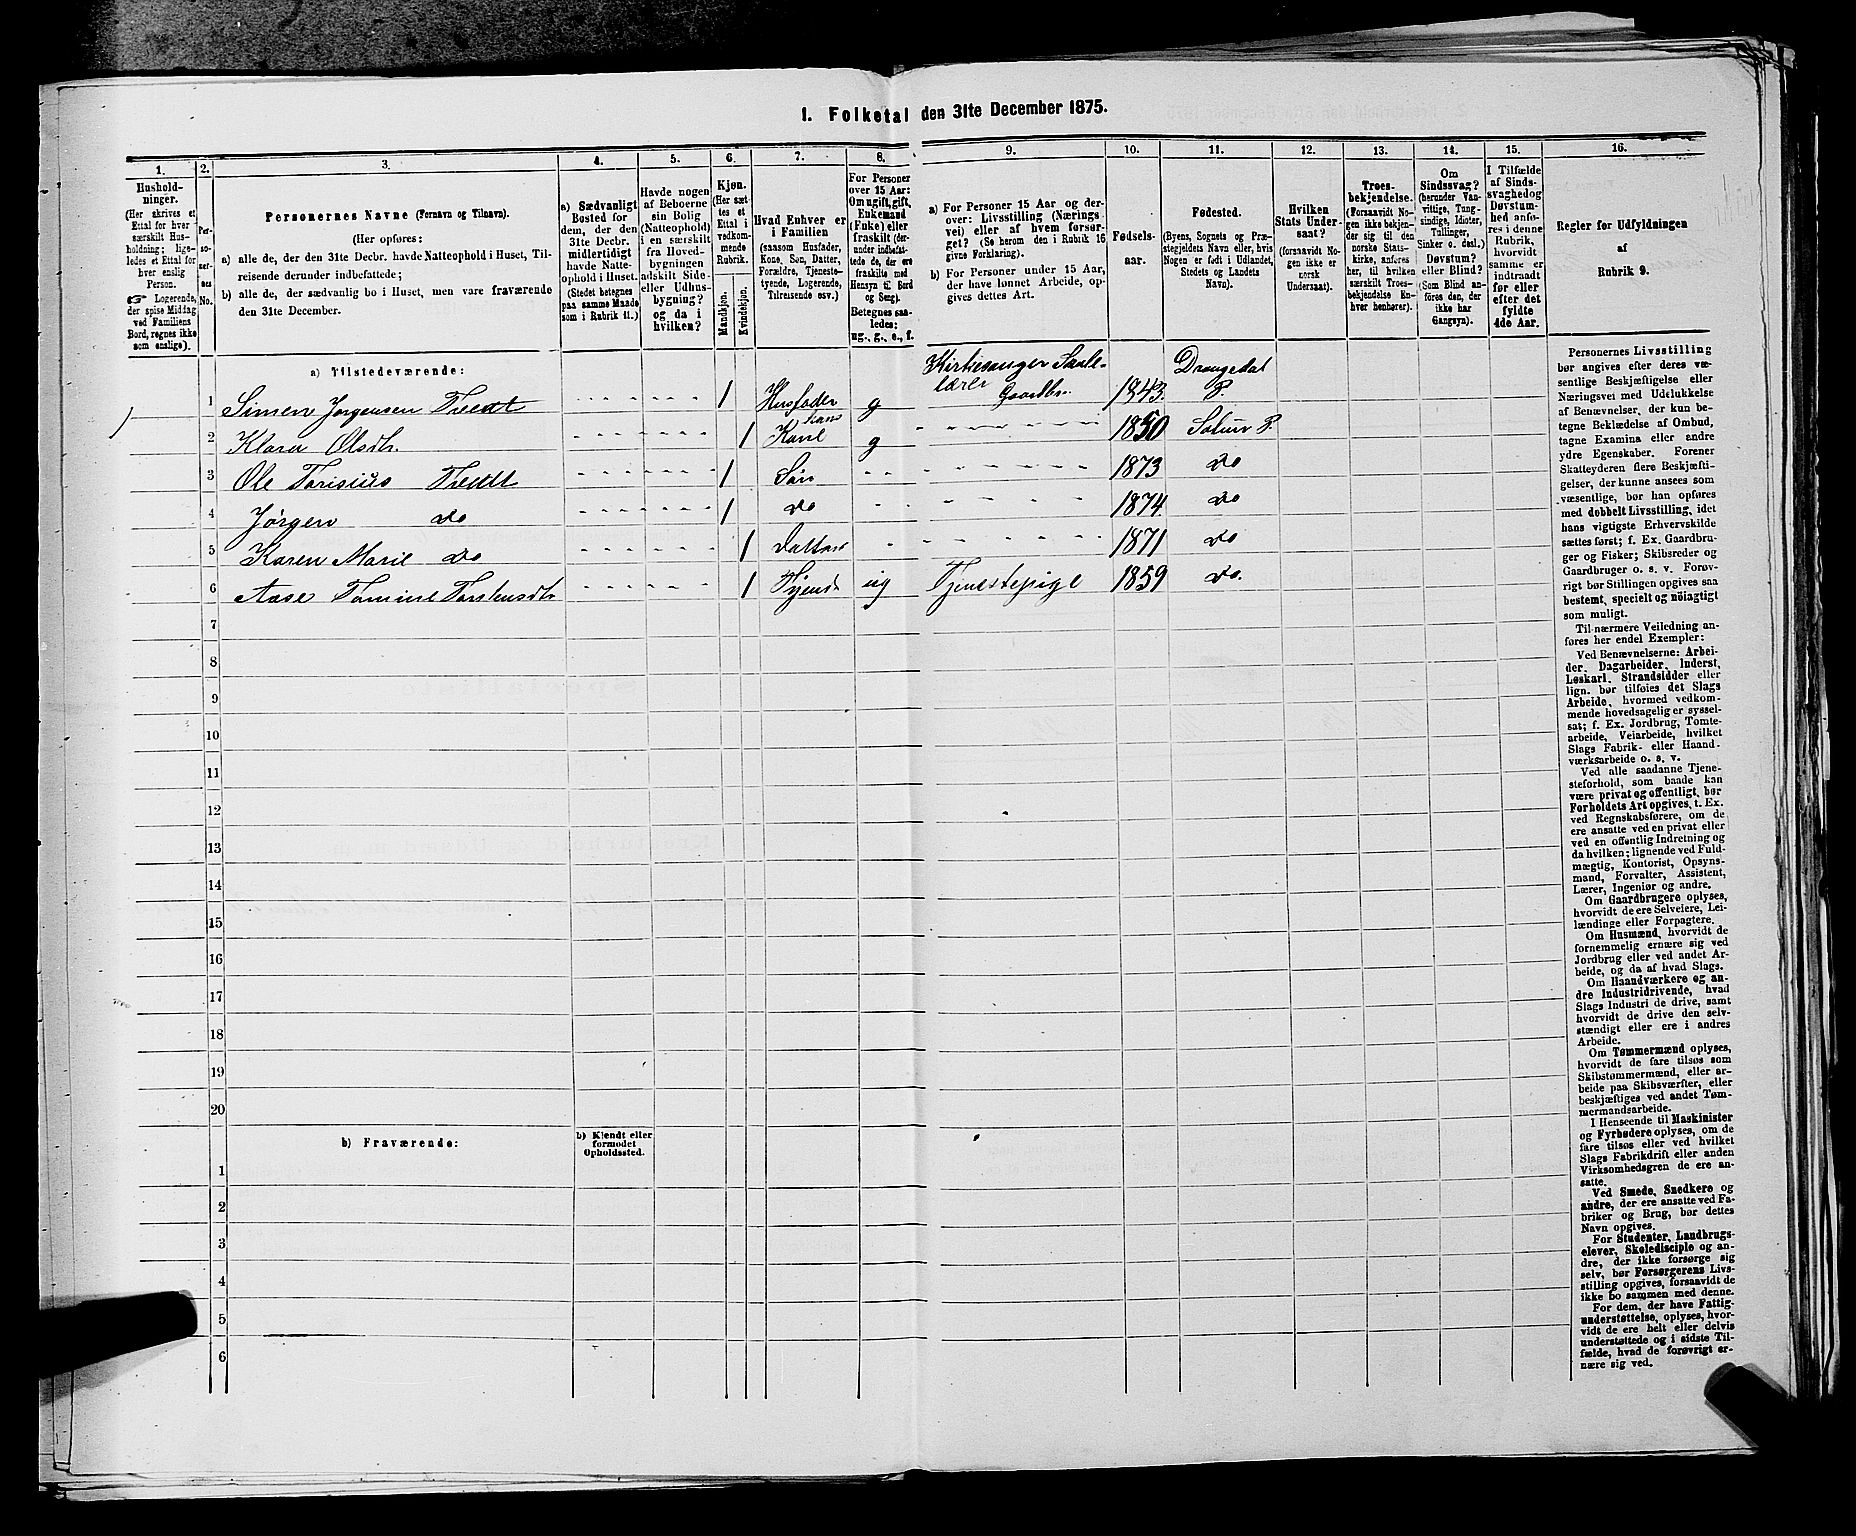 I. Folketal den 31te December 1875.
1. 2. 3. 4. 5. 6. 7. 8. 9. 10. 11. 12. 13. 14. 15. 16.
Hushold-
ninger.
(Her skrives et
Ettal for hver
særskilt Hus-
holdning; lige-
ledes et Ettal for
hver enslig
Person.
☞ Logerende,
der spise Middag
ved Familiens
Bord, regnes ikke
som enslige).
Per-
so-
ner-
nes
No.
Personernes Navne (Fornavn og Tilnavn).
(Her opføres:
a) alle de, der den 31te Decbr. havde Natteophold i Huset, Til-
reisende derunder indbefattede;
b) alle de, der sædvanlig bo i Huset, men vare fraværende
den 31te December.
a) Sædvanligt
Bosted for
dem, der den
31te Decbr.
midlertidigt
havde Natte-
ophold i Huset.
(Stedet betegnes
paa samme Maade
som i Rubrik 11.)
Havde nogen
af Beboerne
sin Bolig
(Natteophold)
i en særskilt
fra Hoved-
bygningen
adskilt Side-
eller Udhus-
bygning?
og da i
hvilken?
Kjøn.
(Her sæt-
tes et
Ettal i
vedkom-
mende
Rubrik.
Mandkjøn.
Kvindekjøn.
Hvad Enhver er
i Familien
(saasom Husfader,
Kone, Søn, Datter,
Forældre, Tjeneste-
tyende, Logerende,
Tilreisende osv.)
For Personer
over 15 Aar:
Om ugift, gift,
Enkemand
(Enke) eller
fraskilt (der-
under indbefat-
tede de, der ere
fraskilte med
Hensyn til Bord
og Seng).
Betegnes saa-
ledes:
ug., g., e., f.
a) For Personer 15 Aar og der-
over: Livsstilling (Nærings-
vei) eller af hvem forsør-
get? (Se herom den i Rubrik 16
givne Forklaring).
b) For Personer under 15 Aar,
der have lønnet Arbeide, op-
gives dettes Art.
Fødsels-
aar.
Fødested.
(Byens, Sognets og Præ-
stegjeldets Navn eller, hvis
Nogen er født i Udlandet,
Stedets og Landets
Navn).
Hvilken
Stats Under-
saat?
(forsaavidt No-
gen ikke er
norsk
Undersaat).
Troes-
bekjendelse.
(Forsaavidt No-
gen ikke bekjen-
der sig til den
norske Stats-
kirke, anføres
her, til hvilken
særskilt Troes-
bekjendelse En-
hver henhører).
Om
Sindssvag?
(herunder Van-
vittige, Tung-
sindige, Idioter,
Tullinger,
Sinker o. desl.)
Døvstum?
eller Blind?
(Som Blind an-
føres den, der
ikke har
Gangsyn).
I Tilfælde
af Sinds-
svaghed og
Døvstum-
hed anfø-
res i denne
Rubrik,
hvorvidt
samme er
indtraadt
før eller
efter det
fyldte
4de Aar.
Regler før Udfyldningen
af
Rubrik 9.
a) Tilstedeværende:
1) 1 Simen Jørgensen Tredt 1 Husfader g Kirkesanger Skole-
lærer Gaardbr. 1843. Drangedal P.
2 Klara Olsdtr. 1 hans Kone g 1850 Solum P.
3 Ole Tarisius Tredt 1 Søn 1873 do
4 Jørgen do 1 do 1874 do
5 Karen Marie do 1 Datter 1871 do
6 Aase Tomine Torstensdtr 1 Tjenst ug Tjenestepige 1859 do.
7
8
9
10
11
12
13
14
15
16
17
18
19
20
b) Fraværende:
b) Kjendt eller
formodet
Opholdssted.
1
2
3
4
5
6
Personernes Livsstilling
bør angives efter deres væ-
sentlige Beskjæftigelse eller
Næringsvei med Udelukkelse
af Benævnelser, der kun be-
tegne Beklædelse af Ombud,
tagne Examina eller andre
ydre Egenskaber. Forener
Skatteyderen flere Beskjæfti-
gelser, der kunne ansees som
væsentlige, bør han opføres
med dobbelt Livsstilling, idet
hans vigtigste Erhvervskilde
sættes først; f. Ex. Gaardbru-
ger og Fisker; Skibsreder og
Gaardbruger o. s. v. Forøv-
rigt bør Stillingen opgives saa
bestemt, specielt og nøiagtigt
som muligt.
Til nærmere Veiledning an-
føres her endel Exempler:
Ved Benævnelserne: Arbei-
der, Dagarbeider, Inderst,
Løskarl, Strandsidder eller
lign. bør tilføies det Slags
Arbeide, hvormed vedkom-
mende hovedsagelig er syssel-
sat; f. Ex. Jordbrug, Tomte-
arbeide, Veiarbeide, hvilket
Slags Fabrik- eller Haand-
værksarbeide o. s. v.
Ved alle saadanne Tjene-
steforhold, som baade kan
være privat og offentligt, bør
Forholdets Art opgives, t. Ex.
ved Regnskabsførere, om de
ere ansatte ved en privat eller
ved en offentlig Indretning og
da hvilken; lignende ved Fuld-
mægtig, Kontorist, Opsyns-
mand, Forvalter, Assistent,
Lærer, Ingeniør og andre.
Om Gaardbrugere oplyses,
hvorvidt de ere Selveiere, Lei-
lændinge eller Forpagtere.
Om Husmænd, hvorvidt de
fornemmelig ernære sig ved
Jordbrug eller ved andet Ar-
beide, og da af hvad Slags.
Om Haandværkere og an-
dre Industridrivende, hvad
Slags Industri de drive, samt
hvorvidt de drive den selv-
stændigt eller ere i andres
Arbeide.
Om Tømmermænd oplyses,
hvorvidt de fare tilsøs som
Skibstømmermænd, eller ar-
beide paa Skibsværfter, eller
beskjæftiges ved andet Tøm-
mermandsarbeide.
I Henseende til Maskinister
og Fyrbødere oplyses, om de
fare tilsøs eller ved hvilket
Slags Fabrikdrift eller anden
Virksomhedsgren de ere an-
satte.
Ved Smede, Snedkere og
andre, der ere ansatte ved Fa-
briker og Brug, bør dettes
Navn opgives.
For Studenter, Landbrugs-
elever, Skoledisciple og an-
dre, der ikke forsørge sig
selv, bør Forsørgerens Livs-
stilling opgives, forsaavidt de
ikke bo sammen med denne.
For dem, der have Fattig-
understøttelse, oplyses, hvor-
vidt de ere helt eller delvis
understøttede og i sidste Til-
fælde, hvad de forøvrigt er-
nære sig ved.